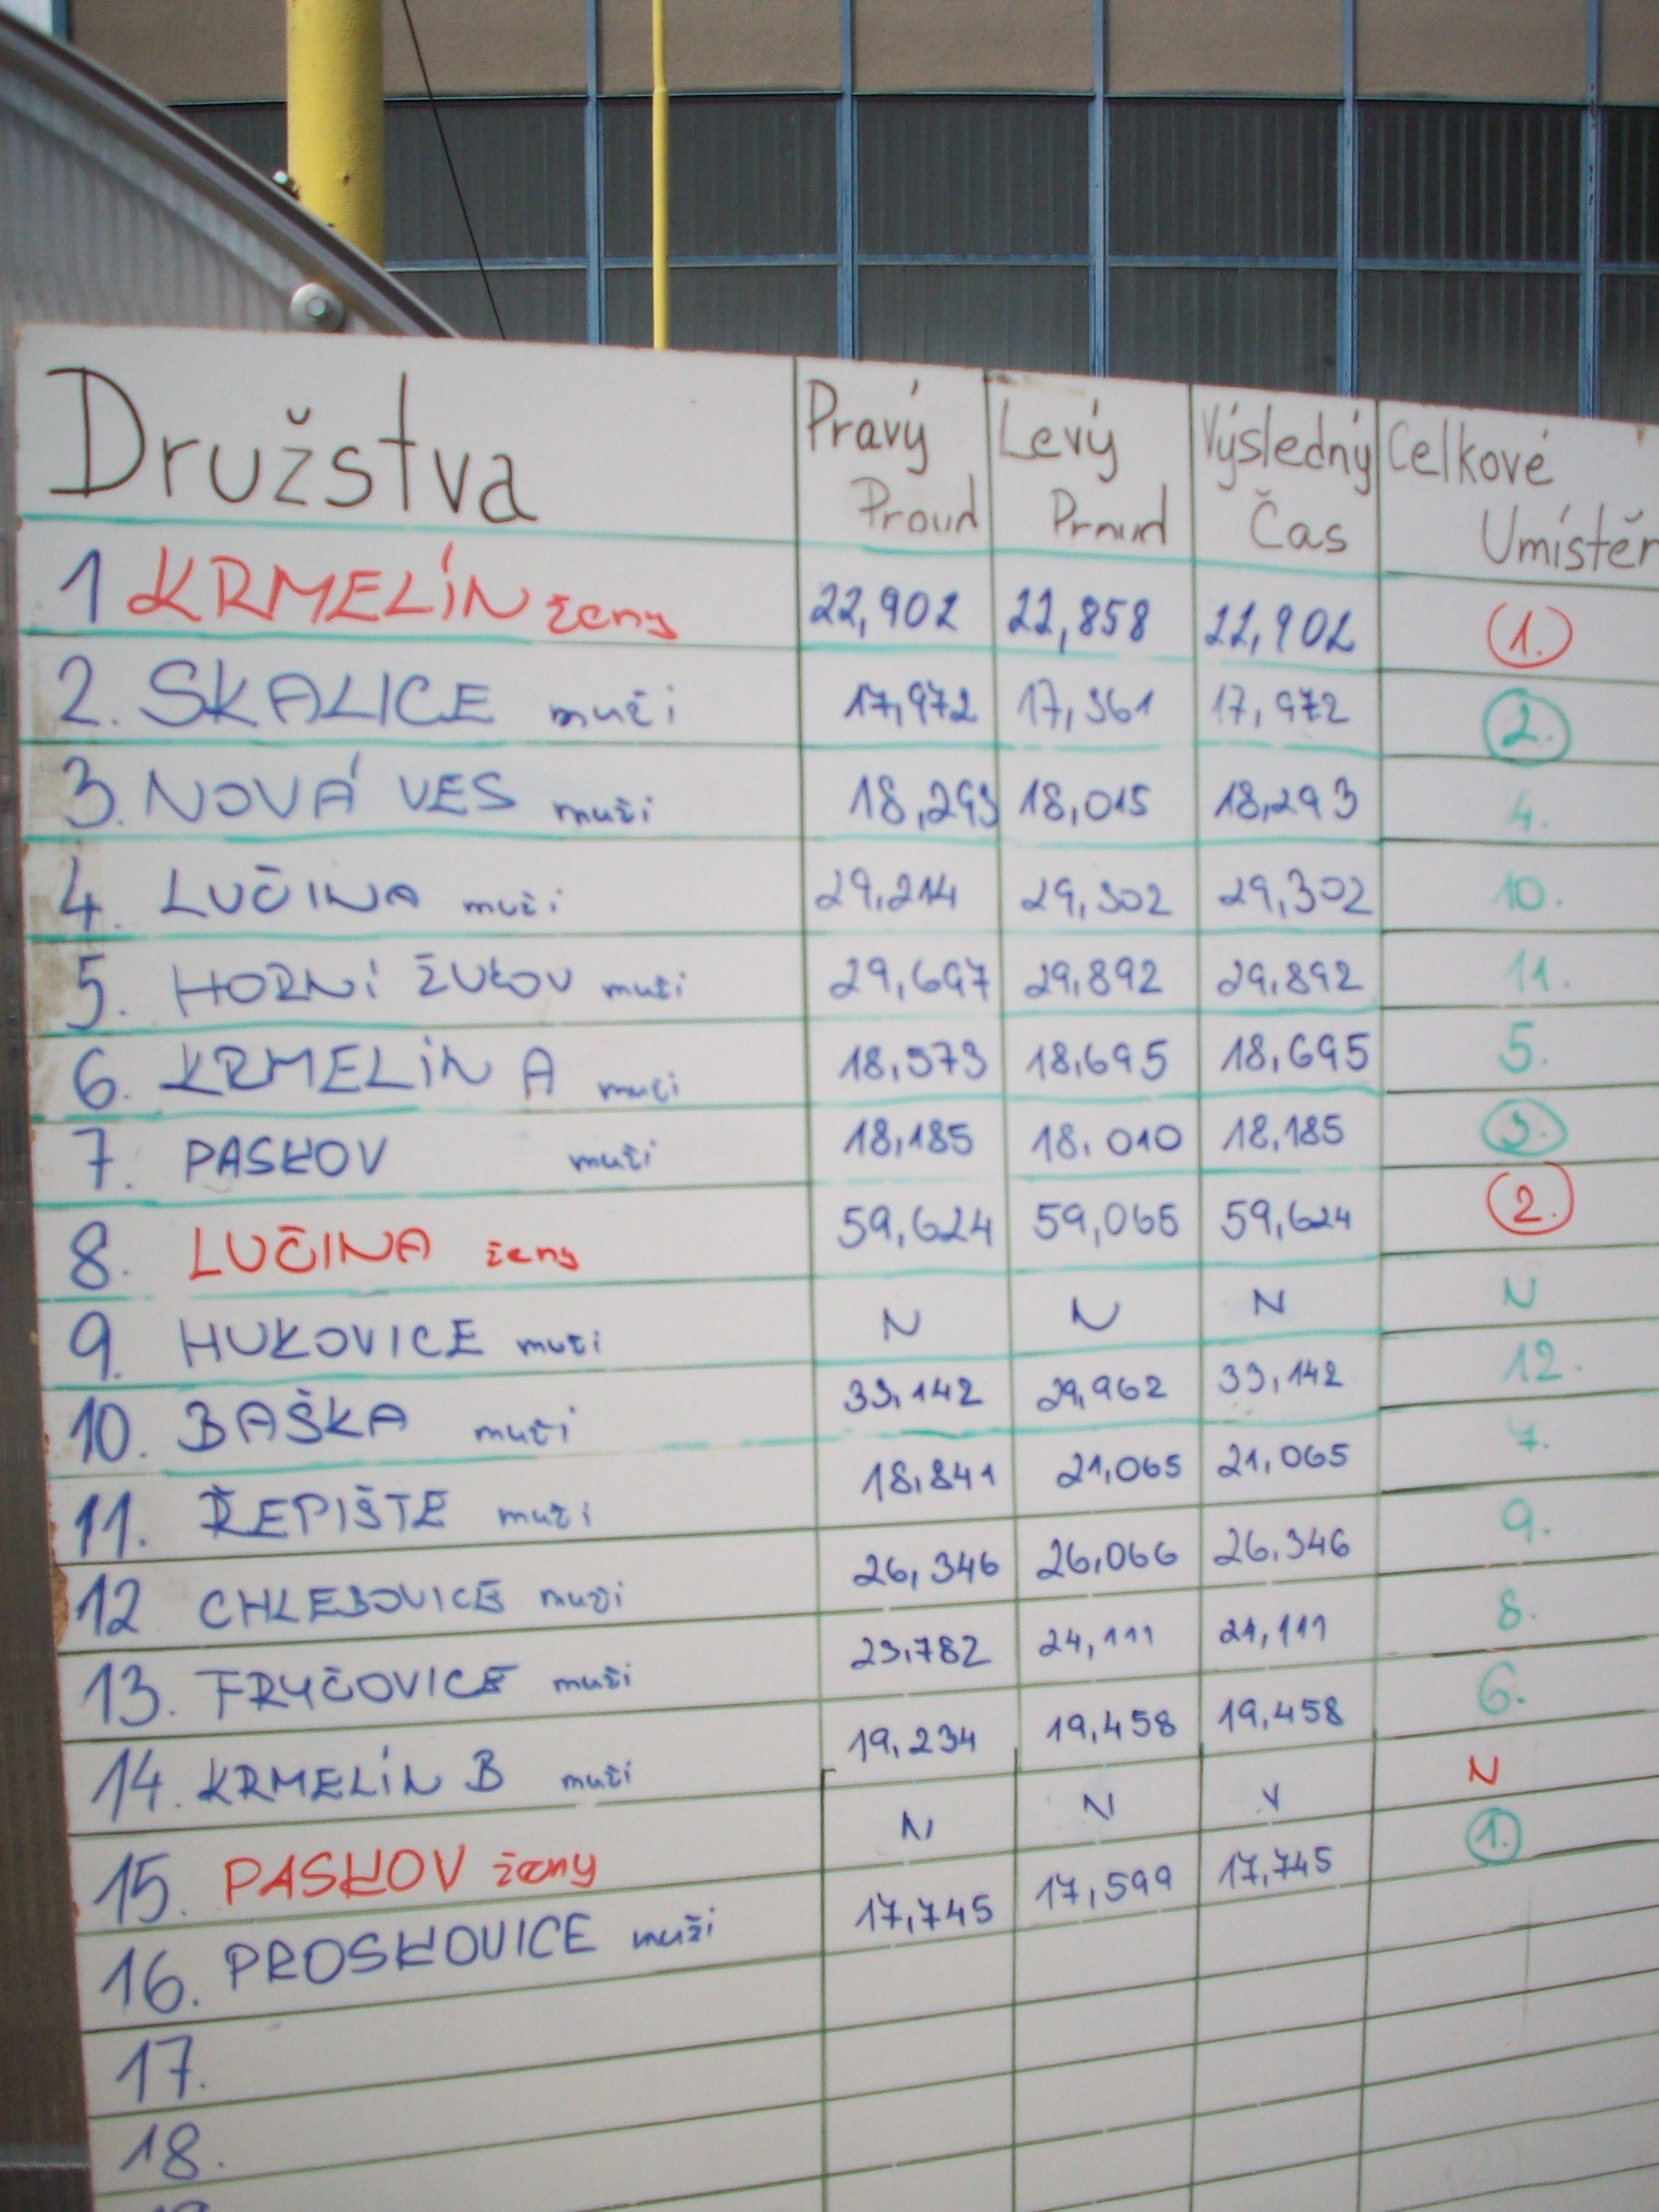 Družstva Pravý Proud Levý Proud Výsledný Čas Celkové Umístěn
1 KRMELÍN ženy 22,902 22,858 22,902 1.
2. SKALICE muži 17,972 17,361 17,972 2.
3. NOVÁ VES muži 18,293 18,015 18,293 4.
4. LUČINA muži 29,214 29,302 29,302 10.
5. HORNÍ ŽUKOV muži 29,697 29,892 29,892 11.
6. KRMELÍN A muži 18,573 18,695 18,695 5.
7. PASKOV muži 18,185 18,010 18,185 3.
8. LUČINA ženy 59,624 59,065 59,624 2.
9. HUKOVICE muži N N N N
10. BAŠKA muži 33,142 29,962 33,142 12.
11. ŘEPIŠTĚ muži 18,841 21,065 21,065 7.
12 CHLEBOVICE muži 26,346 26,066 26,346 9.
13. FRYČOVICE muži 23,782 24,111 24,111 8.
14. KRMELÍN B muži 19,234 19,458 19,458 6.
15. PASKOV ženy N N N N
16. PROSKOVICE muži 17,745 17,599 17,745 1.
17.
18.